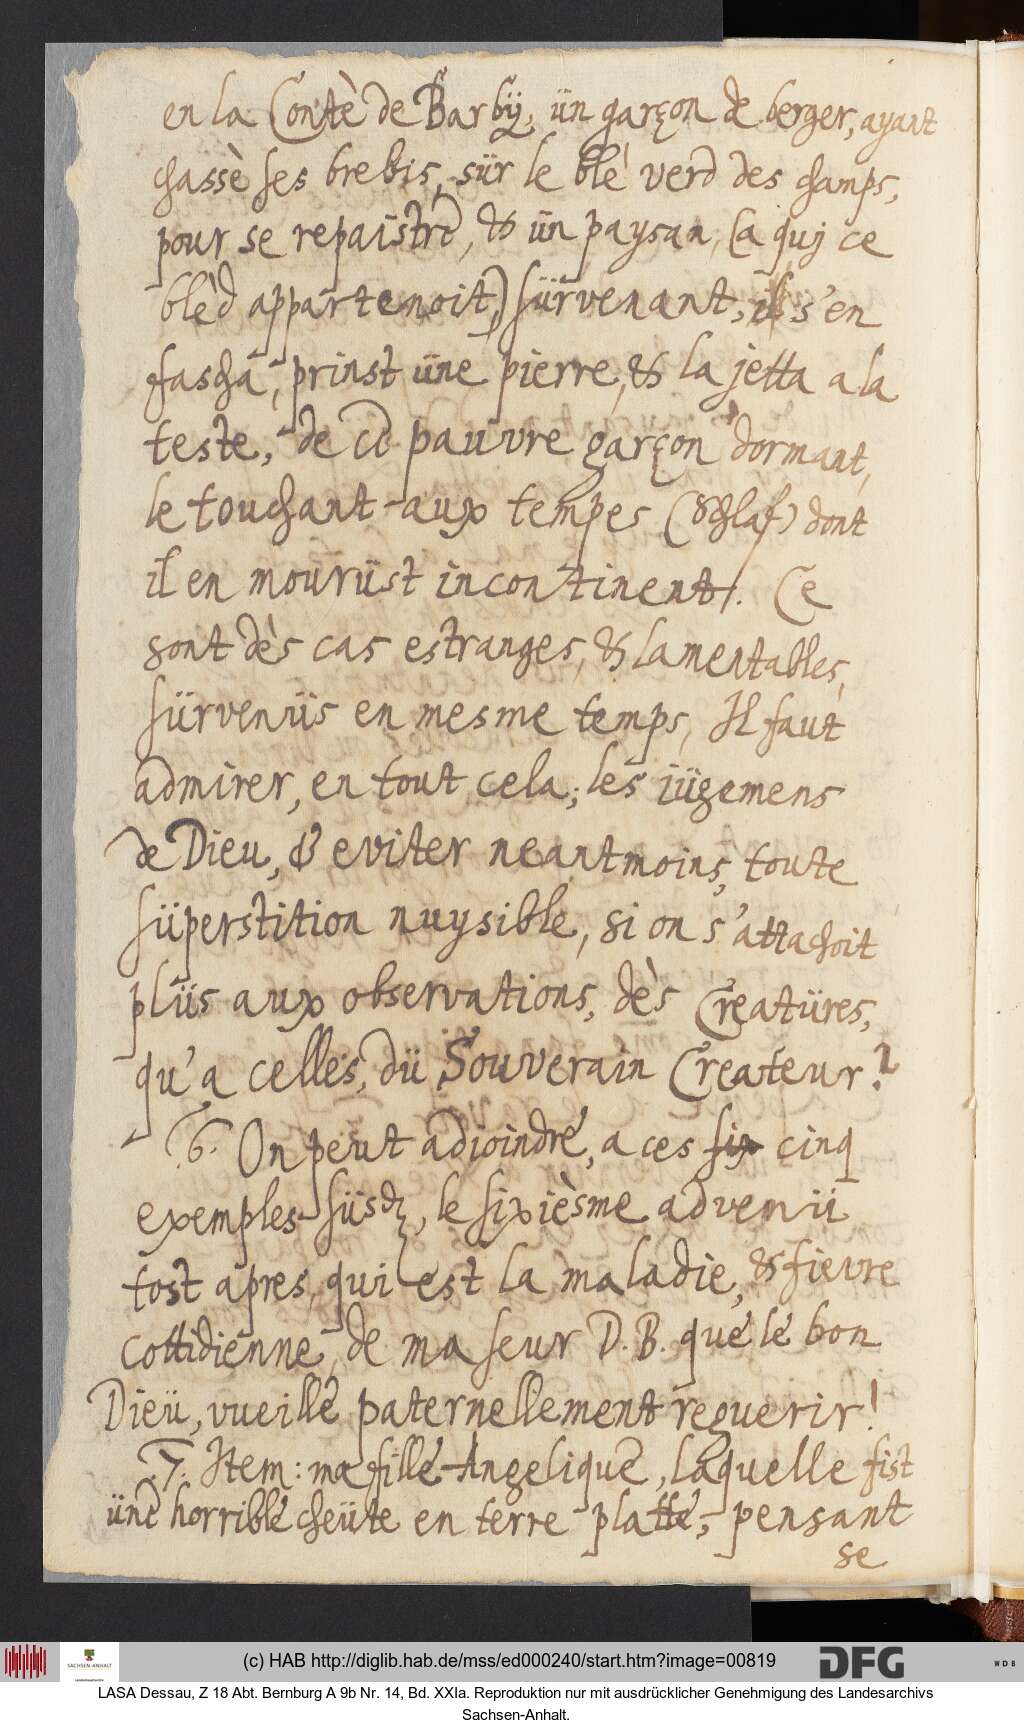 en la Contè de Barbÿ, ün garçon de berger, ayant
chassè ses brebis, sür le blé verd des champs,
pour se repaistre, & ün paysan, (a quj ce
blèd appartenoit) sürvenant, il s'en
fascha, prinst üne pierre, & la jetta a la
teste, de ce pauvre garçon dormant,
le touchant aux tempes (Schlaf) dont
il en mourüst incontinent. Ce
sont dès cas estranges, & lamentables,
sürvenüs en mesme temps, Il faut
admirer, en tout cela, les jügemens
de Dieu, & eviter neantmoins, toute
süperstition nuysible, si on s'attachoit
plüs aux observations, dès Creatüres,
qu'a celles, dü Souverain Createur?
6. On peut adjoindre, a ces six cinq
exemples süsd, le sixièsme advenü
tost apres, qui est la maladie, & fievre
cottidienne, de ma seur D. B. que le bon
Dieü, vueille paternellement reguerir!
7. Item: ma fille Angelique, laquelle fist
üne horrible cheüte en terre platte, pensant
se
(c) HAB http://diglib.hab.de/mss/ed000240/start.htm?image=00819
SACHSEN-ANHALT
DFG
WDB
LASA Dessau, Z 18 Abt. Bernburg A 9b Nr. 14, Bd. XXIa. Reproduktion nur mit ausdrücklicher Genehmigung des Landesarchivs
Sachsen-Anhalt.